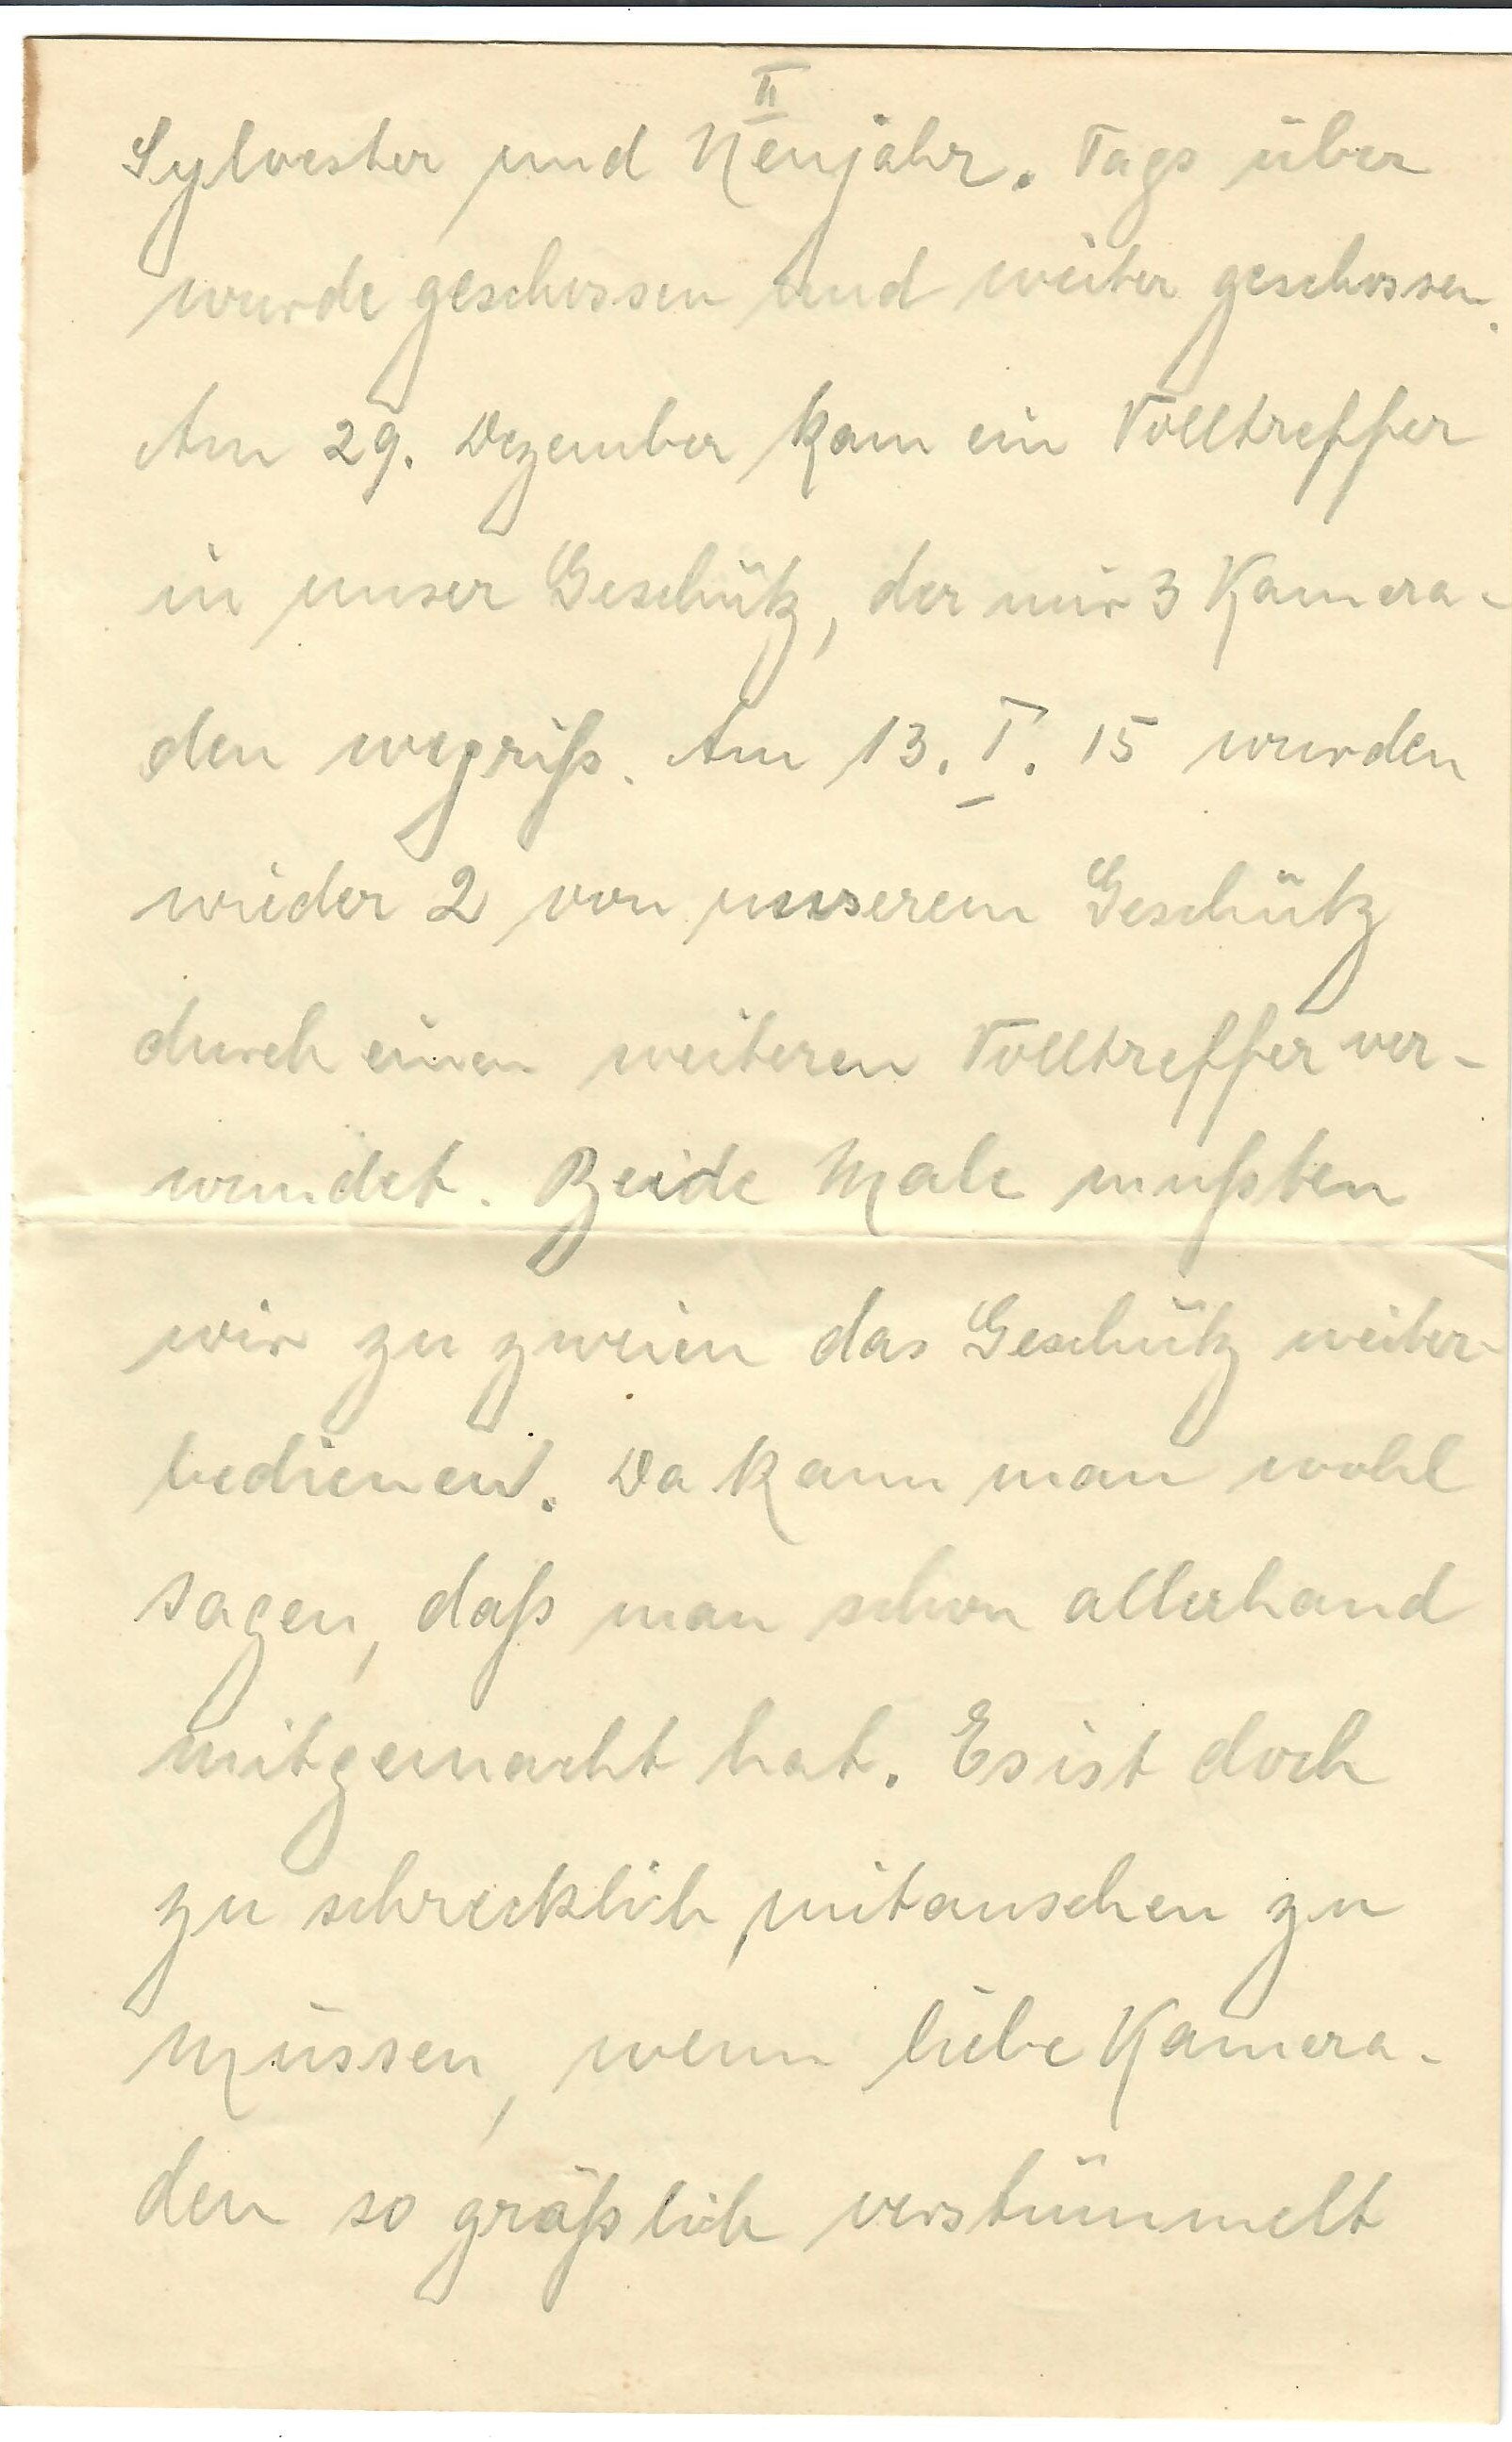 II
Sylvester und Neujahr. Tags über
wurde geschossen und weiter geschossen.
Am 29. Dezember kam ein Volltreffer
in unser Geschütz, der mir 3 Kamera-
den wegriß. Am 13. I. 15 wurden
wieder 2 von unserem Geschütz
durch einen weiteren Volltreffer ver-
wundet. Beide Male mußten
wir zu zweien das Geschütz weiter-
bedienen. Da kann man wohl
sagen, daß man schon allerhand
mitgemacht hat. Es ist doch
zu schrecklich, mitansehen zu
müssen, wenn liebe Kamera-
den so gräßlich verstümmelt